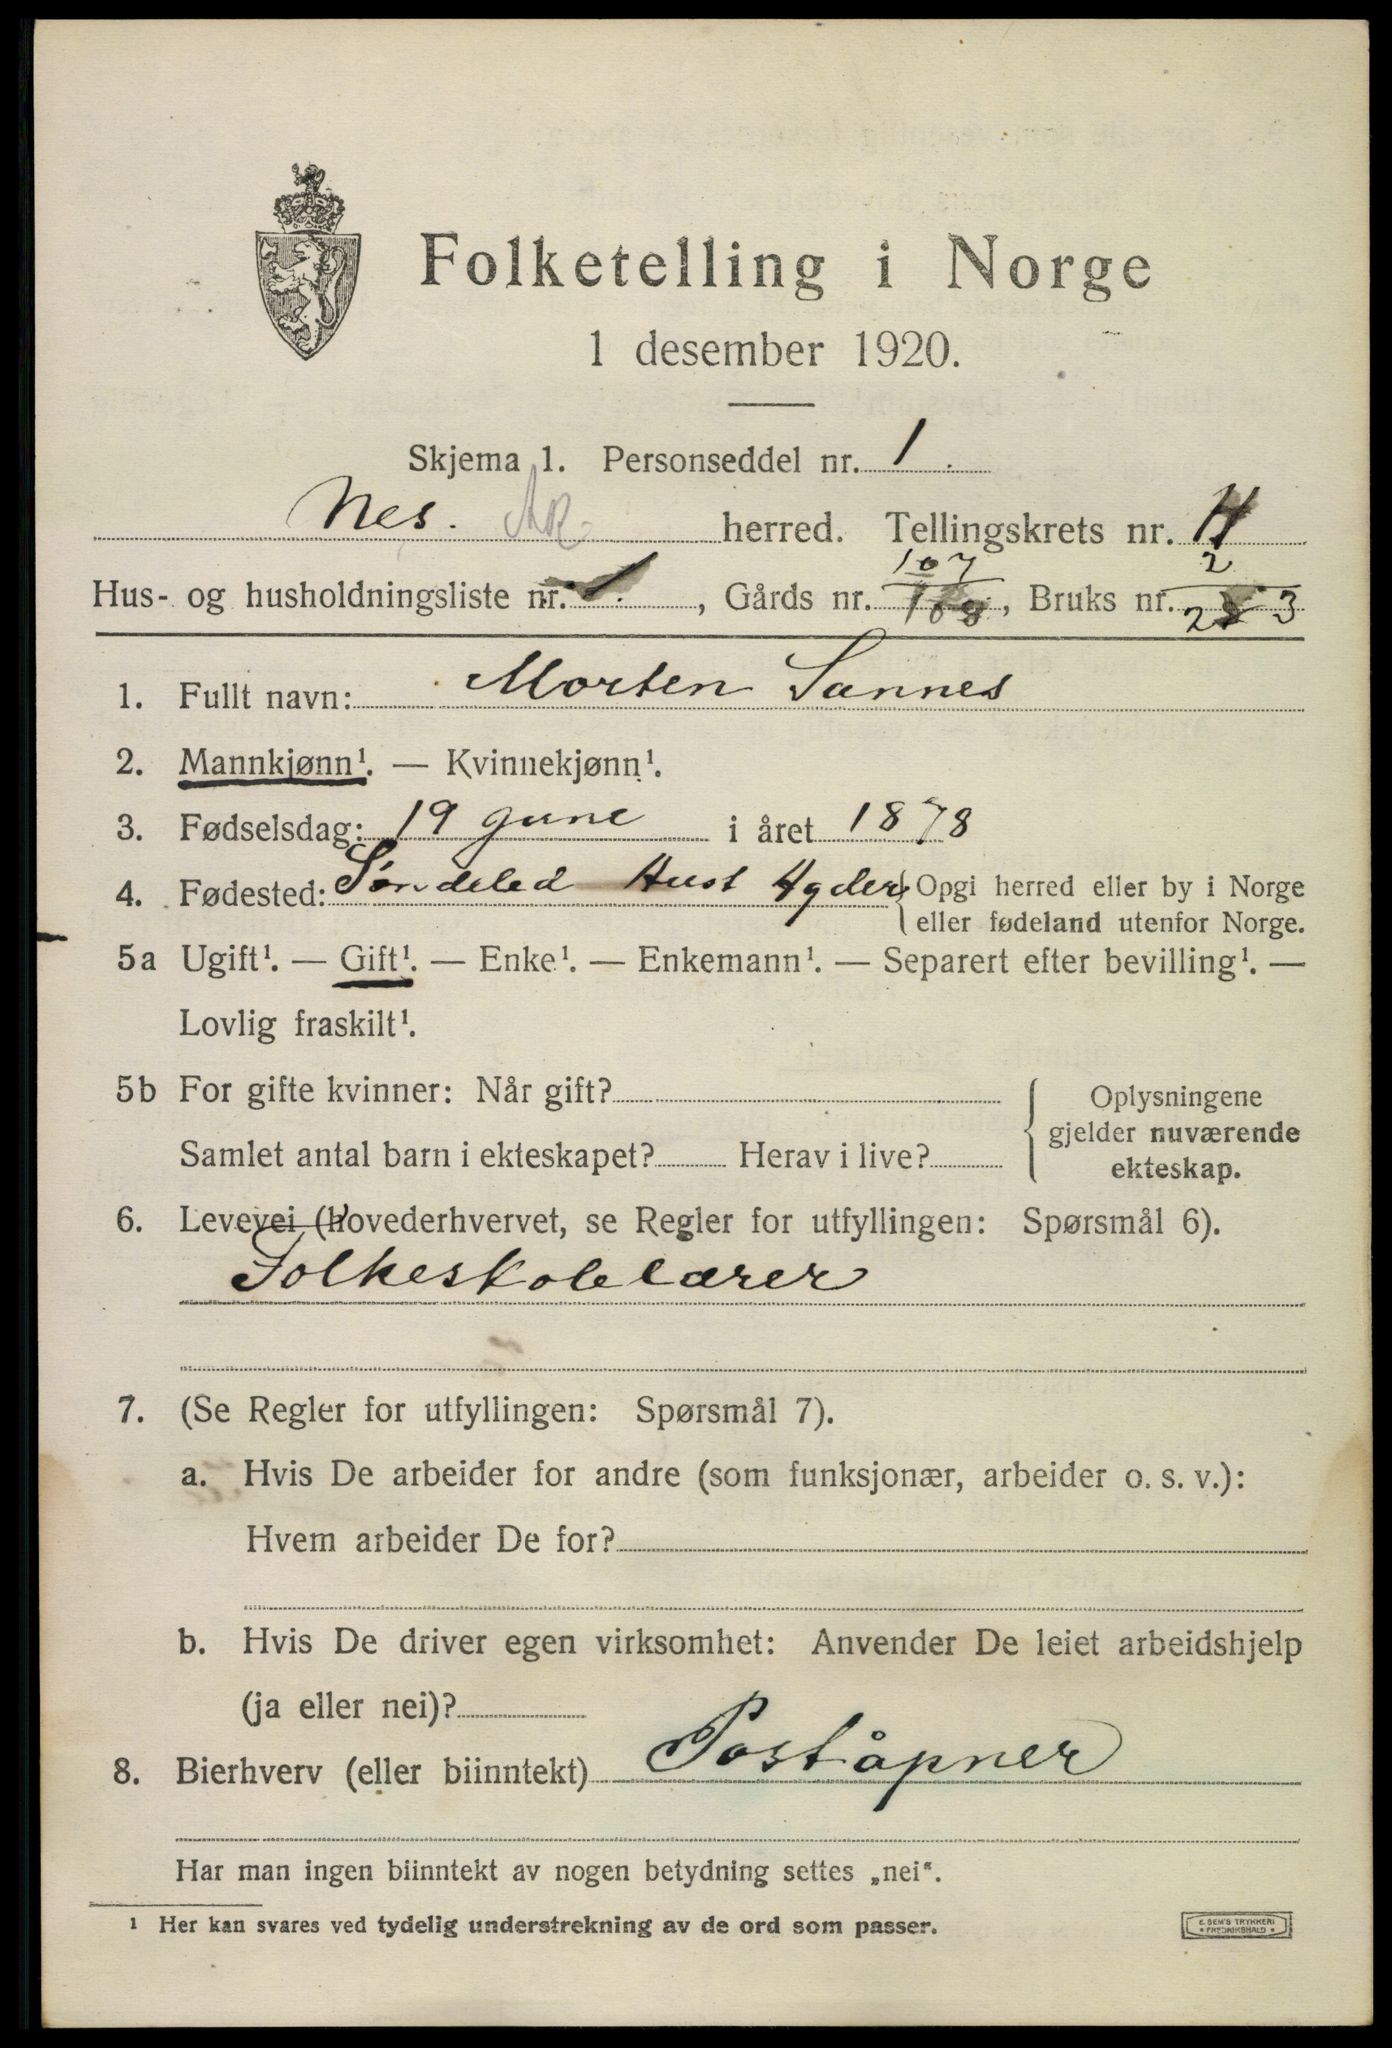 Folketelling i Norge
1 desember 1920.
Skjema 1. Personseddel nr. 1.
Nes. AK herred. Tellingskrets nr. 4
Hus- og husholdningsliste nr. 1., Gårds nr. 107/108, Bruks nr. 2/2 3
1. Fullt navn: Morten Sannes
2. Mannkjønn¹. — Kvinnekjønn¹.
3. Fødselsdag: 19 june i året 1878
4. Fødested: Søndeled Aust Agder { Opgi herred eller by i Norge
eller fødeland utenfor Norge.
5a Ugift¹. — Gift¹. — Enke¹. — Enkemann¹. — Separert efter bevilling¹. —
Lovlig fraskilt¹.
5b For gifte kvinner: Når gift? { Oplysningene
gjelder nuværende
Samlet antal barn i ekteskapet? Herav i live?
ekteskap.
6. Levevei (hovederhvervet, se Regler for utfyllingen: Spørsmål 6).
Folkeskolelærer
7. (Se Regler for utfyllingen: Spørsmål 7).
a. Hvis De arbeider for andre (som funksjonær, arbeider o. s. v.):
Hvem arbeider De for?
b. Hvis De driver egen virksomhet: Anvender De leiet arbeidshjelp
(ja eller nei)?
8. Bierhverv (eller biinntekt) Poståpner
Har man ingen biinntekt av nogen betydning settes „nei“.
¹ Her kan svares ved tydelig understrekning av de ord som passer.
E. SEM'S TRYKKERI
* FREDRIKSHALD *